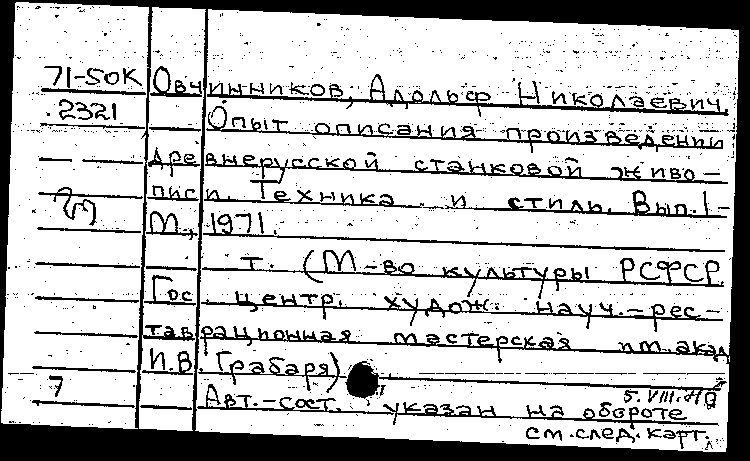 71-50К Овчинников, Адольф Николаевич.
2321 Опыт описания произведений
древнерусской станковой живо-
писи. Техника и стиль. Вып. 1-
М., 1971.
т. (М-во культуры РСФСР.
Гос. центр. худож. науч.-рес-
таврационная мастерская им. акад
И.В. Грабаря)
7 5.VIII.71
Авт.-сост. указан на обороте
см. след. карт.